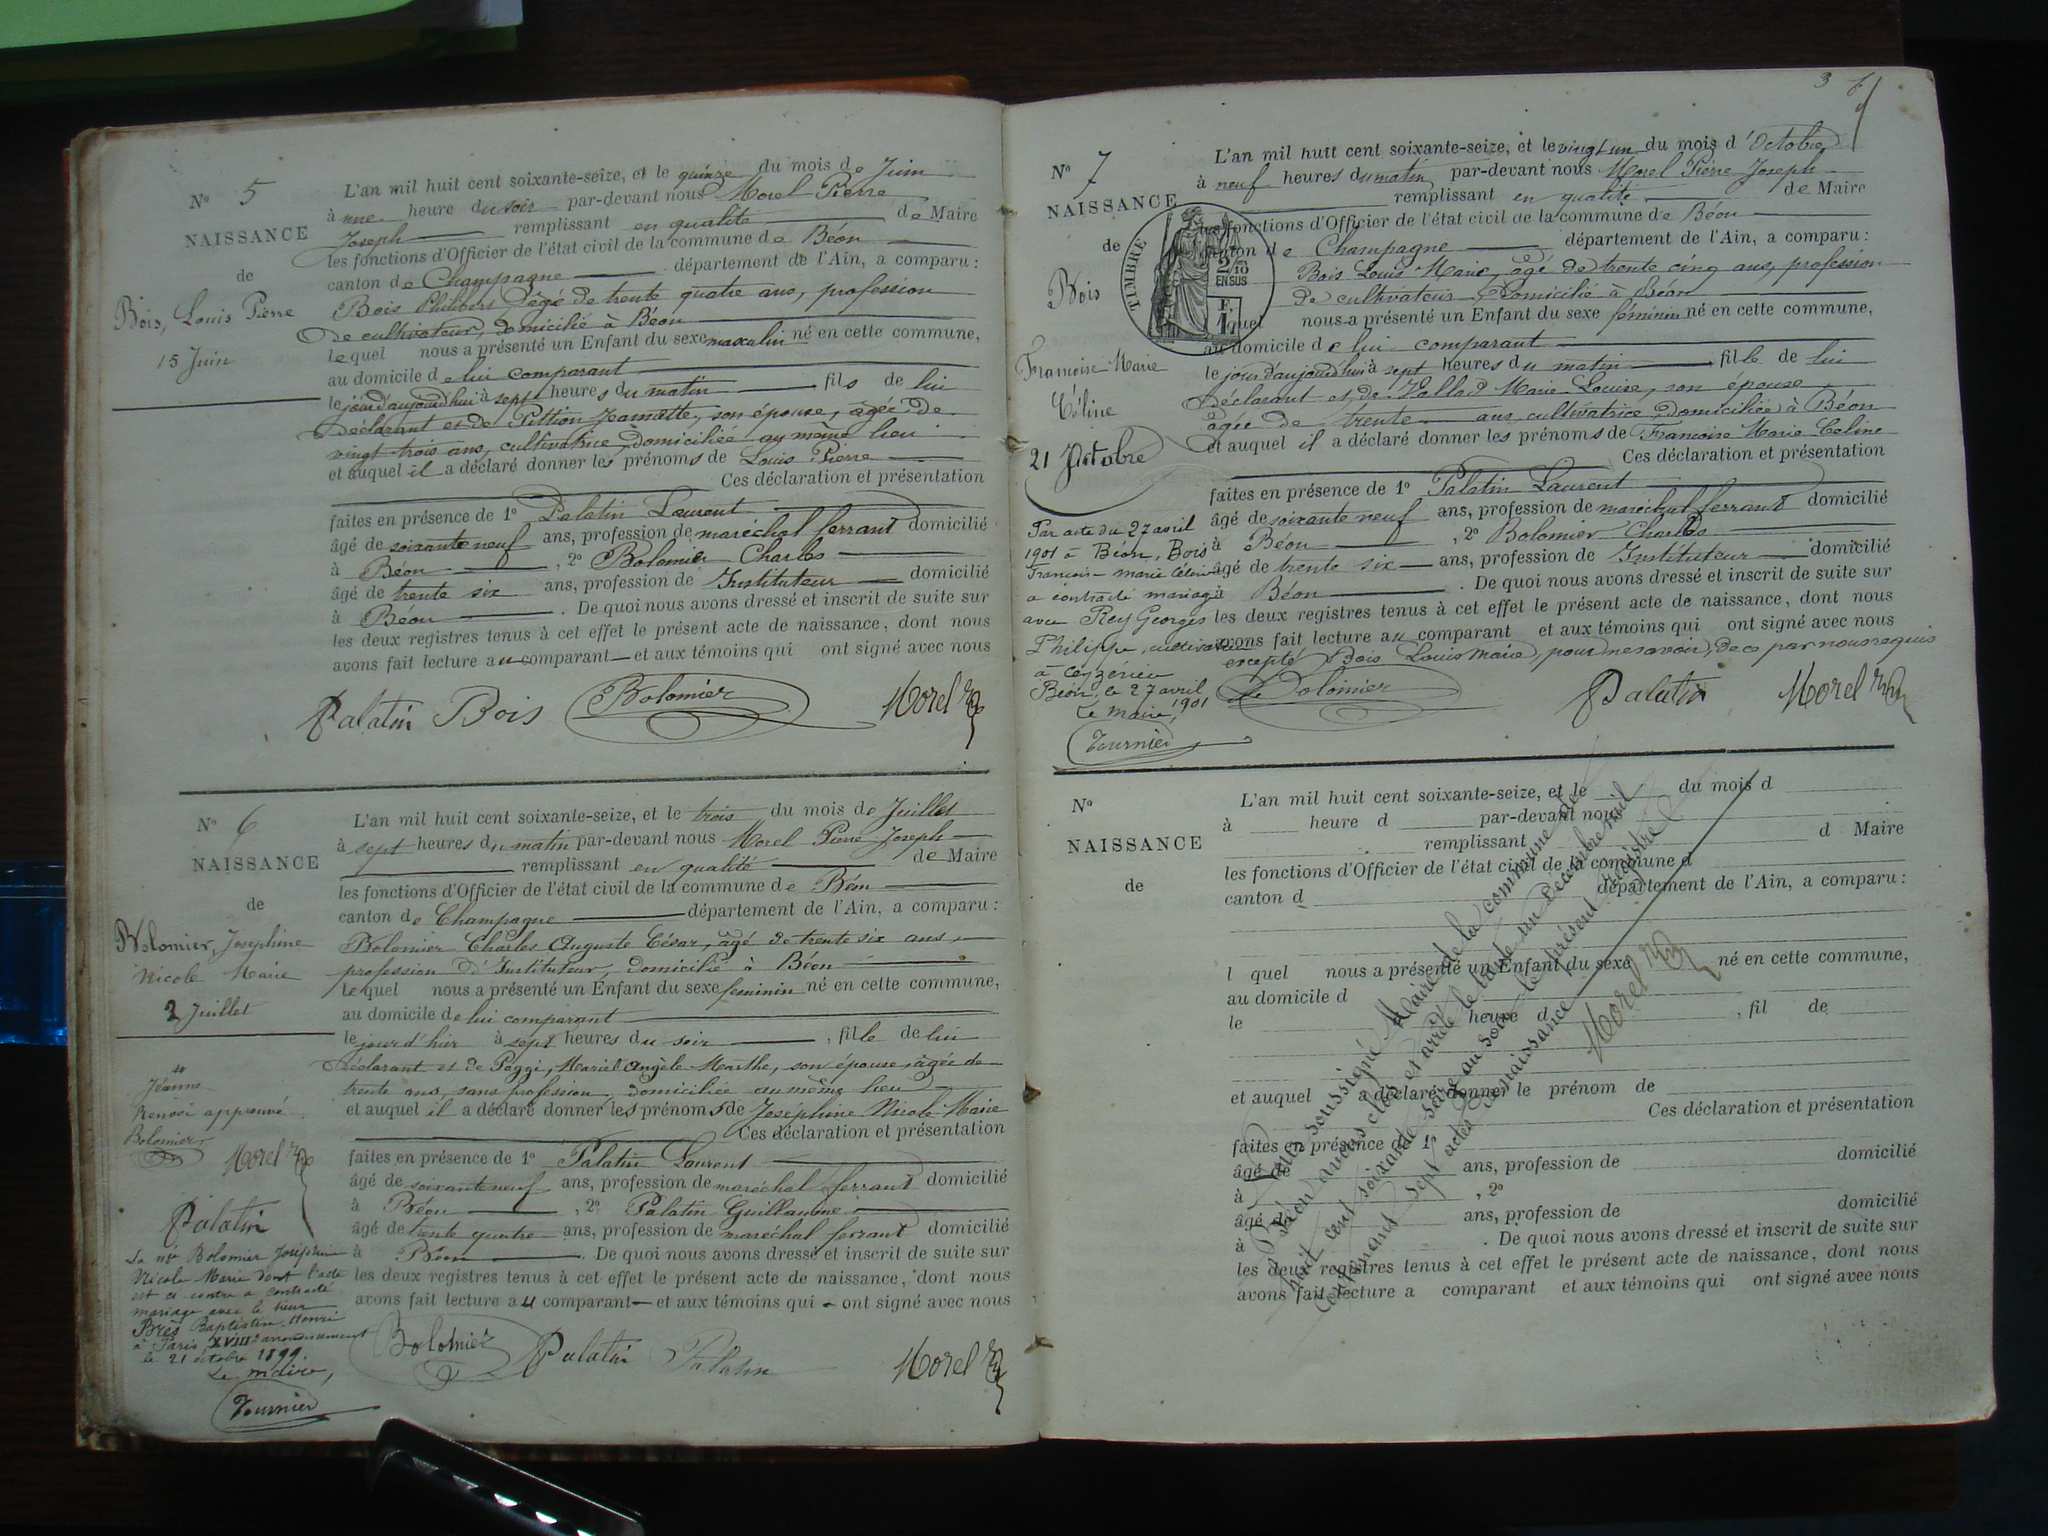 N° 5
NAISSANCE
de
Bois, Louis Pierre
15 Juin
L'an mil huit cent soixante-seize, et le quinze du mois de Juin
à une heure du soir par-devant nous Morel Pierre
Joseph remplissant en qualité de Maire
les fonctions d'Officier de l'état civil de la commune de Béon
canton de Champagne département de l'Ain, a comparu :
Bois Philibert, âgé de trente quatre ans, profession
de cultivateur, domicilié à Béon
lequel nous a présenté un Enfant du sexe masculin né en cette commune,
au domicile de lui comparant
le jour d'aujourd'hui à sept heures du matin fils de lui
déclarant et de Pittion Jeannette, son épouse, âgée de
vingt trois ans, cultivatrice, domiciliée au même lieu
et auquel il a déclaré donner les prénoms de Louis Pierre
Ces déclaration et présentation
faites en présence de 1° Palatin Laurent
âgé de soixante neuf ans, profession de maréchal ferrant domicilié
à Béon , 2° Bolomier Charles
âgé de trente six ans, profession de Instituteur domicilié
à Béon . De quoi nous avons dressé et inscrit de suite sur
les deux registres tenus à cet effet le présent acte de naissance, dont nous
avons fait lecture au comparant et aux témoins qui ont signé avec nous
Palatin Bois Bolomier Morel
N° 6
NAISSANCE
de
Bolomier, Josephine
Nicole Marie
2 Juillet
Jeanne
Renvoi approuvé
Bolomier
Morel
Palatin
La née Bolomier Joséphine
Nicole Marie dont l'acte
est ci contre a contracté
mariage avec le sieur
Brès Baptistin Henri
à Paris XVIII arrondissement
le 21 octobre 1899.
Le maire,
Tournier
L'an mil huit cent soixante-seize, et le trois du mois de Juillet
à sept heures du matin par-devant nous Morel Pierre Joseph
remplissant en qualité de Maire
les fonctions d'Officier de l'état civil de la commune de Béon
canton de Champagne département de l'Ain, a comparu :
Bolomier Charles Auguste César, âgé de trente six ans,
profession d'Instituteur, domicilié à Béon
lequel nous a présenté un Enfant du sexe feminin né en cette commune,
au domicile de lui comparant
le jour d'hier à sept heures du soir , fille de lui
déclarant et de Marie Angèle Marthe, son épouse, âgée de
trente ans, sans profession, domiciliée au même lieu
et auquel il a déclaré donner les prénoms de Joséphine Nicole Marie
Ces déclaration et présentation
faites en présence de 1° Palatin Laurent
âgé de soixante neuf ans, profession de maréchal ferrant domicilié
à Béon , 2° Palatin Guillaume
âgé de trente quatre ans, profession de maréchal ferrant domicilié
à Béon . De quoi nous avons dressé et inscrit de suite sur
les deux registres tenus à cet effet le présent acte de naissance, dont nous
avons fait lecture au comparant et aux témoins qui ont signé avec nous
Bolomier Palatin Palatin Morel
3
N° 7
NAISSANCE
de
Bois
Françoise Marie
Céline
21 Octobre
Par acte du 27 avril
1901 à Béon, Bois
Françoise-marie Céline
a contracté mariage
avec Rey Georges
Philippe, cultivateur
à Ceyzérieu
Béon, le 27 avril
1901
Le maire,
Tournier
TIMBRE
2/10
EN SUS
L'an mil huit cent soixante-seize, et le vingt un du mois d'Octobre
à neuf heures du matin par-devant nous Morel Pierre Joseph
remplissant en qualité de Maire
les fonctions d'Officier de l'état civil de la commune de Béon
canton de Champagne département de l'Ain, a comparu :
Bois Louis Marie, âgé de trente cinq ans, profession
de cultivateur, domicilié à Béon
lequel nous a présenté un Enfant du sexe feminin né en cette commune,
au domicile de lui comparant
le jour d'aujourd'hui à sept heures du matin fille de lui
déclarant et de Vallod Marie Louise, son épouse
âgée de trente ans, cultivatrice domiciliée à Béon
et auquel il a déclaré donner les prénoms de Françoise Marie Céline
Ces déclaration et présentation
faites en présence de 1° Palatin Laurent
âgé de soixante neuf ans, profession de maréchal ferrant domicilié
à Béon , 2° Bolomier Charles
âgé de trente six ans, profession de Instituteur domicilié
à Béon . De quoi nous avons dressé et inscrit de suite sur
les deux registres tenus à cet effet le présent acte de naissance, dont nous
avons fait lecture au comparant et aux témoins qui ont signé avec nous
excepté Bois Louis Marie, pour ne savoir, de ce par nous requis
Bolomier Palatin Morel
N°
NAISSANCE
de
L'an mil huit cent soixante-seize, et le du mois d
à heure d par-devant nous
remplissant d Maire
les fonctions d'Officier de l'état civil de la commune d
canton d département de l'Ain, a comparu :
l quel nous a présenté un Enfant du sexe né en cette commune,
au domicile d
le heure d , fil de
et auquel a déclaré donner le prénom de
Ces déclaration et présentation
faites en présence de 1°
âgé de ans, profession de domicilié
à , 2°
âgé de ans, profession de domicilié
à . De quoi nous avons dressé et inscrit de suite sur
les deux registres tenus à cet effet le présent acte de naissance, dont nous
avons fait lecture a comparant et aux témoins qui ont signé avec nous
Nous soussigné Maire de la commune de
Béon avons clos et arrêté le trente un Décembre mil
huit cent soixante seize au soir le présent registre
contenant sept actes de naissance
Morel